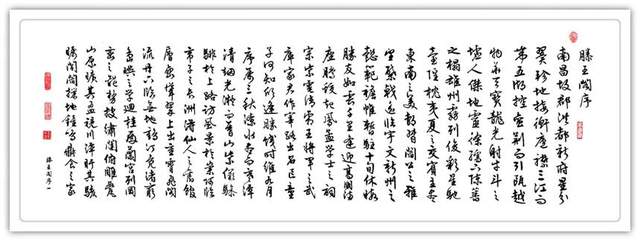 滕王閣序
南昌故郡洪都新府星分
翼軫地接衡廬襟三江而
帶五湖控蠻荊而引甌越
物華天寶龍光射牛斗之
墟人傑地靈徐孺下陳蕃
之榻雄州霧列俊彩星馳
臺隍枕夷夏之交賓主盡
東南之美都督閻公之雅
望棨戟遙臨宇文新州之
懿範襜帷暫駐十旬休暇
勝友如雲千里逢迎高朋滿
座騰蛟起鳳孟學士之詞
宗紫電清霜王將軍之武
庫家君作宰路出名區童
子何知躬逢勝餞時維九月
序屬三秋潦水盡而寒潭
清煙光凝而暮山紫儼驂
騑於上路訪風景於崇阿臨
帝子之長洲得仙人之舊館
層巒聳翠上出重霄飛閣
流丹下臨無地鶴汀鳧渚窮
島嶼之縈迴桂殿蘭宮列岡
巒之體勢披繡闥俯雕甍
山原曠其盈視川澤盱其駭
矚閭閻撲地鐘鳴鼎食之家
滕王閣序一